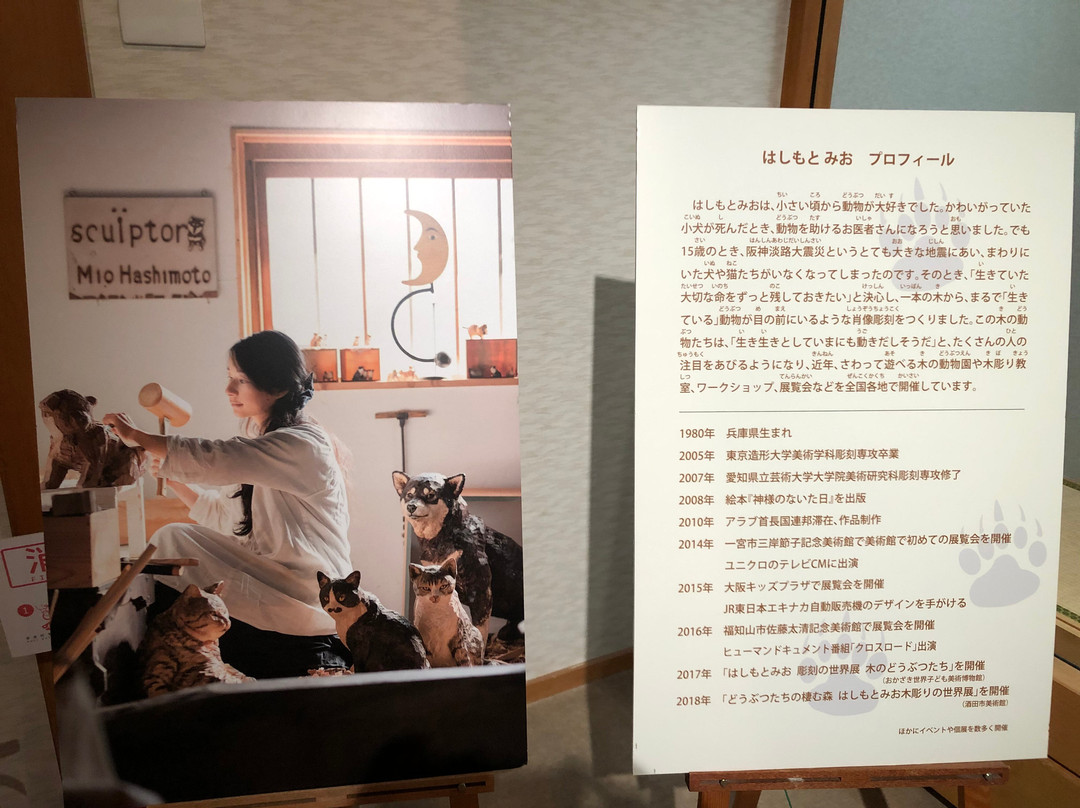 sculptor
Mio Hashimoto
はしもと みお　プロフィール
はしもとみおは、小さい頃から動物が大好きでした。かわいがっていた
小犬が死んだとき、動物を助けるお医者さんになろうと思いました。でも
15歳のとき、阪神淡路大震災というとても大きな地震にあい、まわりに
いた犬や猫たちがいなくなってしまったのです。そのとき、「生きていた
大切な命をずっと残しておきたい」と決心し、一本の木から、まるで「生き
ている」動物が目の前にいるような肖像彫刻をつくりました。この木の動
物たちは、「生き生きとしていまにも動きだしそうだ」と、たくさんの人の
注目をあびるようになり、近年、さわって遊べる木の動物園や木彫り教
室、ワークショップ、展覧会などを全国各地で開催しています。
1980年　兵庫県生まれ
2005年　東京造形大学美術学科彫刻専攻卒業
2007年　愛知県立芸術大学大学院美術研究科彫刻専攻修了
2008年　絵本『神様のないた日』を出版
2010年　アラブ首長国連邦滞在、作品制作
2014年　一宮市三岸節子記念美術館で美術館で初めての展覧会を開催
ユニクロのテレビCMに出演
2015年　大阪キッズプラザで展覧会を開催
JR東日本エキナカ自動販売機のデザインを手がける
2016年　福知山市佐藤太清記念美術館で展覧会を開催
ヒューマンドキュメント番組「クロスロード」出演
2017年　「はしもとみお 彫刻の世界展 木のどうぶつたち」を開催
（おかざき世界子ども美術博物館）
2018年　「どうぶつたちの棲む森 はしもとみお木彫りの世界展」を開催
（酒田市美術館）
ほかにイベントや個展を数多く開催